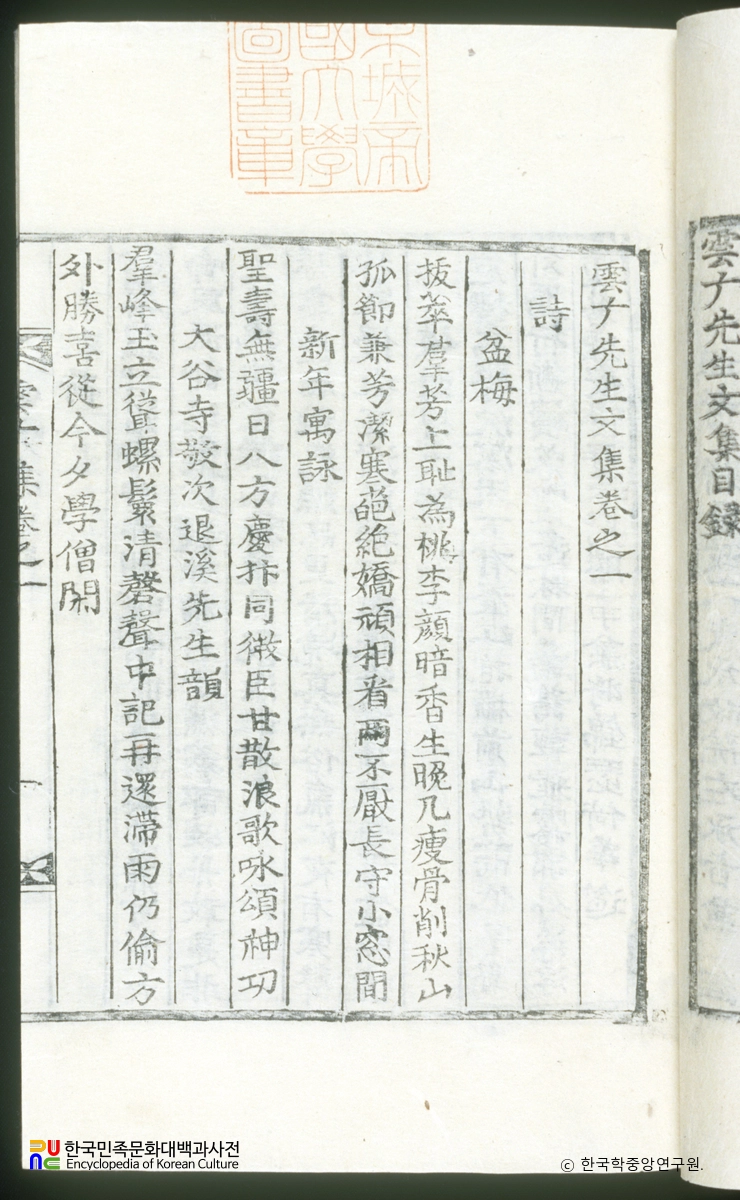 雲广先生文集目錄
京城帝
國大學
圖書章
雲广先生文集卷之一
詩
盆梅
拔萃羣芳上耻為桃李顔暗香生晩几瘦骨削秋山
孤節兼芳潔寒葩絶嬌頑相看兩不厭長守小窓間
新年寓詠
聖壽無疆日八方慶抃同微臣甘散浪歌咏頌神功
大谷寺敬次退溪先生韻
羣峰玉立聳螺鬟清磬聲中記再還滯雨仍偷方
外勝喜從今夕學僧閑
雲广集卷之一
一
한국민족문화대백과사전
Encyclopedia of Korean Culture
© 한국학중앙연구원.